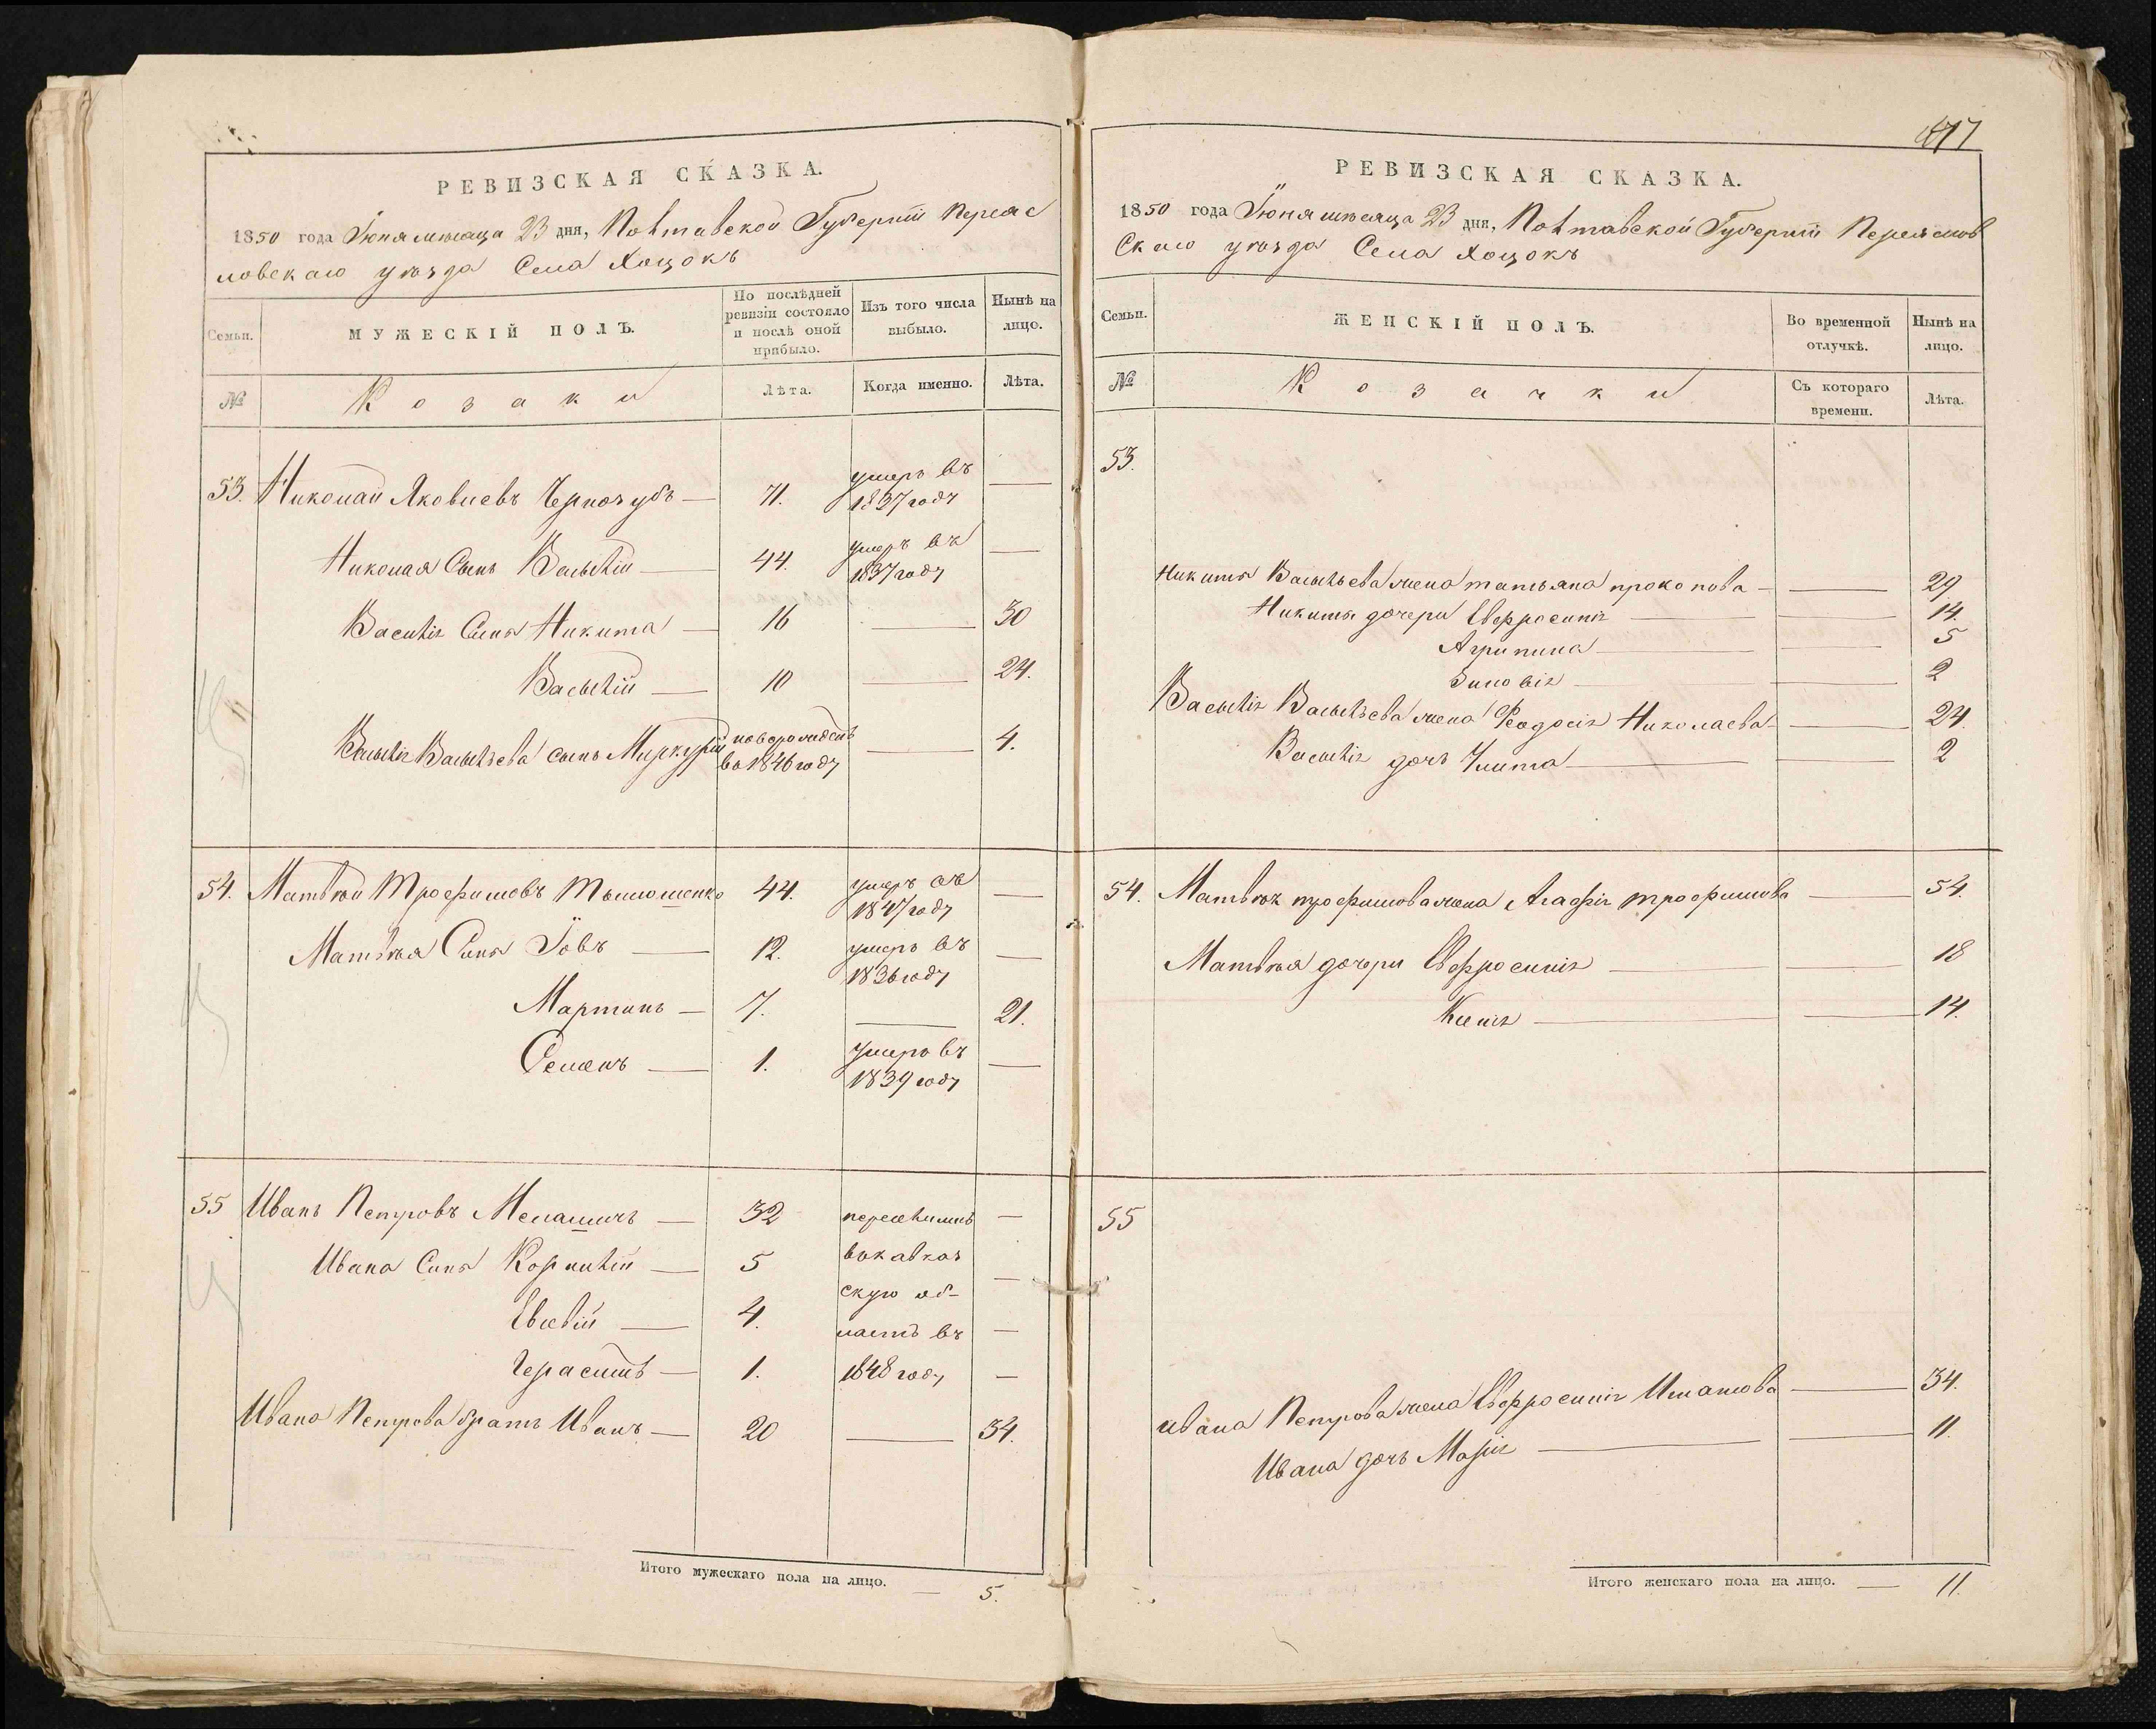 РЕВИЗСКАЯ СКАЗКА.
1850 года Іюня месяца 23 дня, Полтавской Губерніи Переяс
ловскаго уезда Села Хоцокъ
Семьи.
МУЖЕСКІЙ ПОЛЪ.
По послѣдней
ревизіи состояло
и послѣ оной
прибыло.
Изъ того числа
выбыло.
Нынѣ на
лицо.
№
Козаки
Лѣта.
Когда именно.
Лѣта.
53. Николай Яковлевъ Чернозубъ — 71. умеръ въ 1837 году —
Николая Сынъ Василій — 44. умеръ въ 1837 году —
Василія Сынъ Никита — 16 — 30
Василій — 10 — 24.
Василія Васильева сынъ Меркурій новорожденъ во 1846 году — 4.
54. Матвѣй Трофимовъ Тымошенко 44. умеръ въ 1847 году —
Матвѣя Сынъ Іовъ — 12. умеръ въ 1836 году —
Мартинъ — 7. — 21.
Семенъ — 1. умеръ въ 1839 году —
55 Иванъ Петровъ Мелашичъ — 32 переселились —
Ивана Сынъ Корнилій — 5 въ кавказ
скую об- —
Евсевій — 4. ласть въ —
Герасимъ — 1. 1848 году —
Ивана Петрова братъ Иванъ — 20 — 34.
Итого мужескаго пола на лицо. — 5.
477
РЕВИЗСКАЯ СКАЗКА.
1850 года Іюня месяца 23 дня, Полтавской Губерніи Переяслов
Скаго уезда Села Хоцокъ
Семьи.
ЖЕНСКІЙ ПОЛЪ.
Во временной
отлучкѣ.
Нынѣ на
лицо.
№
Козачки
Съ котораго
времени.
Лѣта.
53.
Никиты Васильева жена татьяна прокопова — — 29
Никиты дочери Евфросинія — — 14.
Агрипина — — 5
Зиновія — — 2
Василія Васильева жена Феодосія Николаева — — 24
Василія дочь Улита — — 2
54. Матвѣя трофимова жена Агафія трофимова — 54.
Матвѣя дочери Евфросинія — — 18
Ксенія — — 14.
55
ивана Петрова жена Евфросинія Игнатова — 34.
Ивана дочь Марія — — 11.
Итого женскаго пола на лицо. — 11.